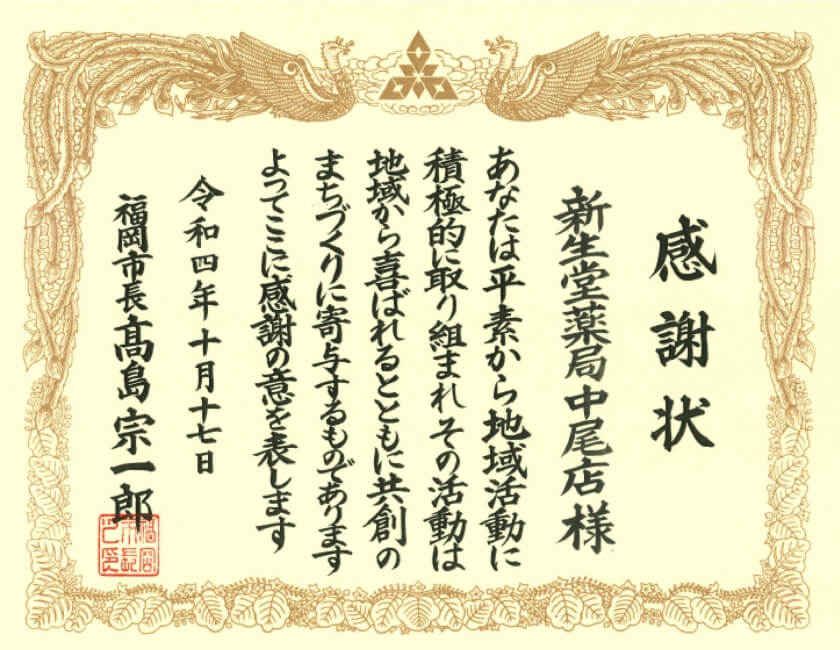 感謝状
新生堂薬局中尾店様
あなたは平素から地域活動に
積極的に取り組まれその活動は
地域から喜ばれるとともに共創の
まちづくりに寄与するものであります
よってここに感謝の意を表します
令和四年十月十七日
福岡市長髙島宗一郎